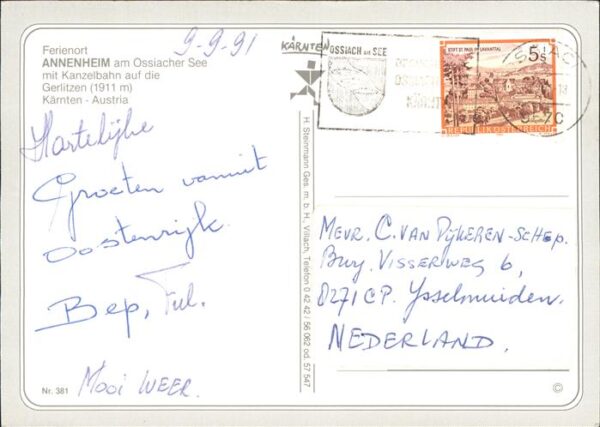 9-9-91
Ferienort
ANNENHEIM am Ossiacher See
mit Kanzelbahn auf die
Gerlitzen (1911 m)
Kärnten - Austria
Hartelijke
Groeten vanuit
Oostenrijk.
Bep,
Mooi WEER.
Nr. 381
H. Steinmann Ges. m. b. H., Villach, Telefon 0 42 42 / 56 062 od. 57 547
KÄRNTEN
OSSIACH am SEE
STIFT ST. PAUL IM LAVANTTAL
5 S
REPUBLIK ÖSTERREICH
MEVR. C. VAN DIJKEREN-SCHEP.
Burg. VISSERWEG 6,
8271 CP. Ysselmuiden.
NEDERLAND.
©